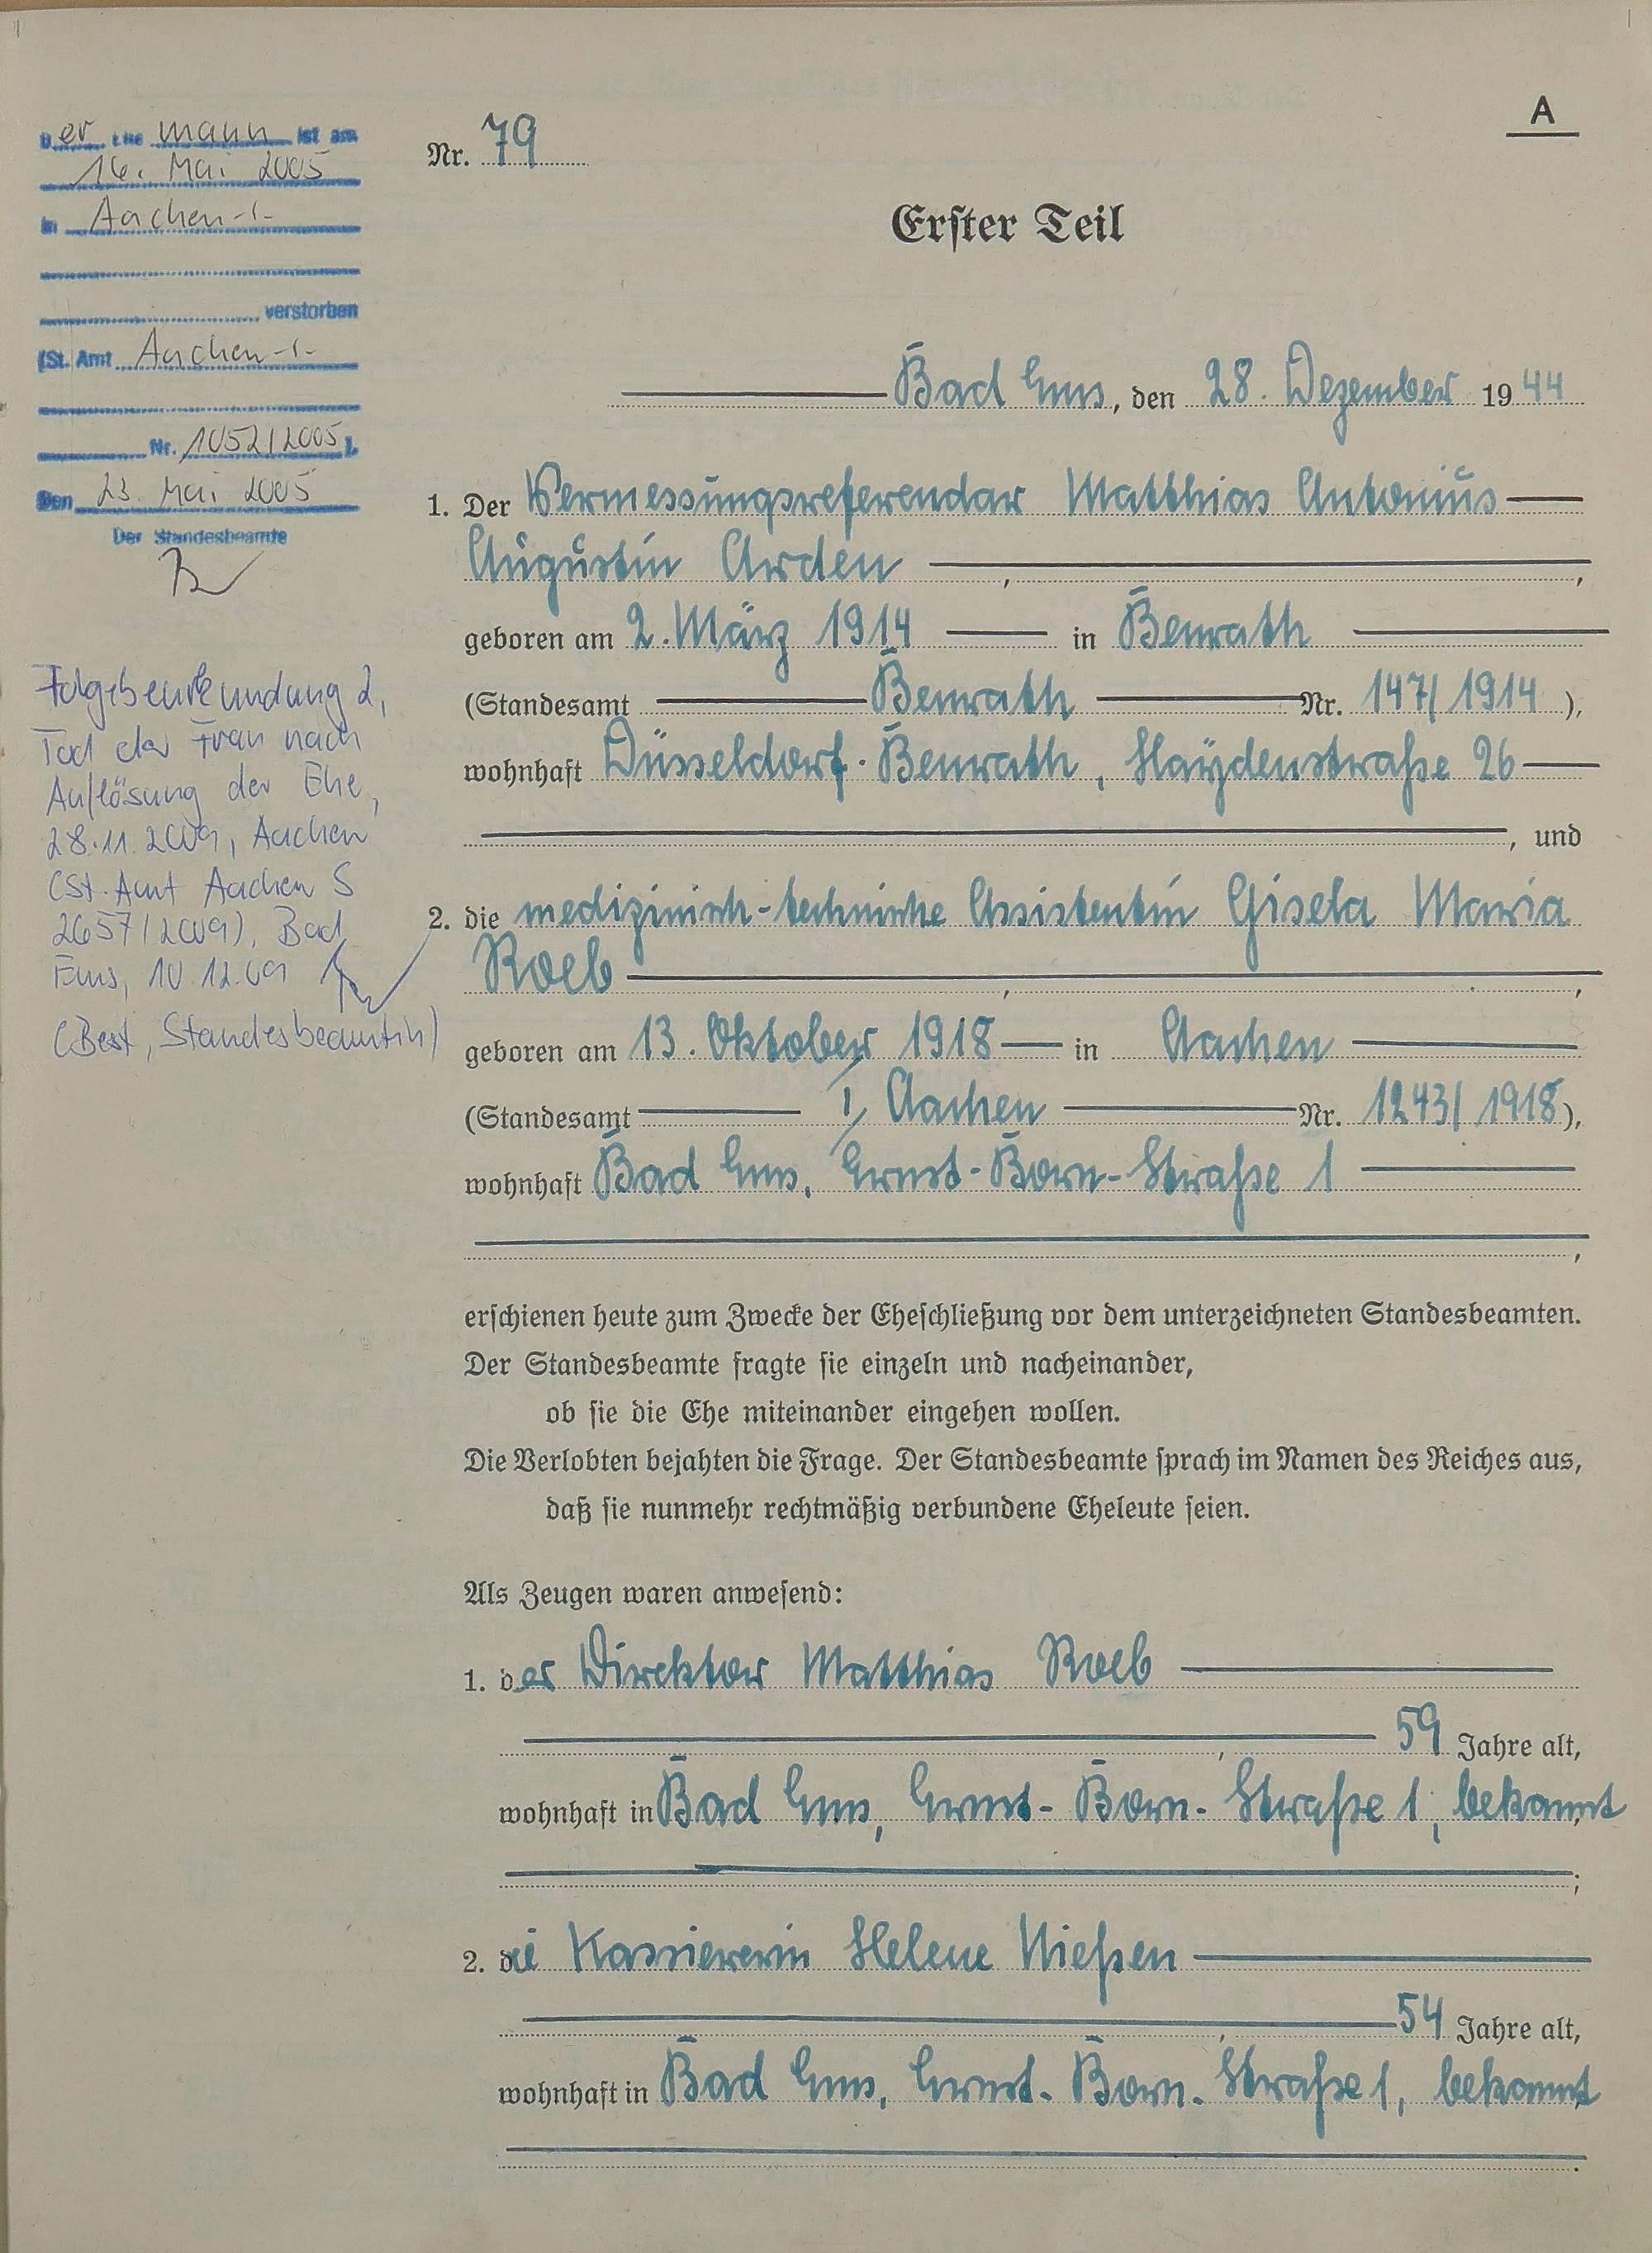 A
Nr. 79
Erster Teil
Bad Ems, den 28. Dezember 1944
1. Der Vermessungsreferendar Matthias Antonius
Augustin Arden,
geboren am 2. März 1914 in Benrath
(Standesamt Benrath Nr. 147/1914),
wohnhaft Düsseldorf-Benrath, Haydenstraße 26
, und
2. die medizinisch-technische Assistentin Gisela Maria
Roeb,
geboren am 13. Oktober 1918 in Aachen
(Standesamt I, Aachen Nr. 1243/1918),
wohnhaft Bad Ems, Ernst-Born-Straße 1
,
erschienen heute zum Zwecke der Eheschließung vor dem unterzeichneten Standesbeamten.
Der Standesbeamte fragte sie einzeln und nacheinander,
ob sie die Ehe miteinander eingehen wollen.
Die Verlobten bejahten die Frage. Der Standesbeamte sprach im Namen des Reiches aus,
daß sie nunmehr rechtmäßig verbundene Eheleute seien.
Als Zeugen waren anwesend:
1. der Direktor Matthias Roeb
59 Jahre alt,
wohnhaft in Bad Ems, Ernst-Born-Straße 1, bekannt
;
2. die Kassiererin Helene Nießen
54 Jahre alt,
wohnhaft in Bad Ems, Ernst-Born-Straße 1, bekannt
.
Der Ehemann ist am
16. Mai 2005
in Aachen-1-
verstorben
(St. Amt Aachen-1-
Nr. 1052/2005).
Den 23. Mai 2005
Der Standesbeamte
Folgebeurkundung 2,
Tod der Frau nach
Auflösung der Ehe,
28.11.2009, Aachen
(St. Amt Aachen S
2657/2009), Bad
Ems, 10.12.09
(Best, Standesbeamtin)